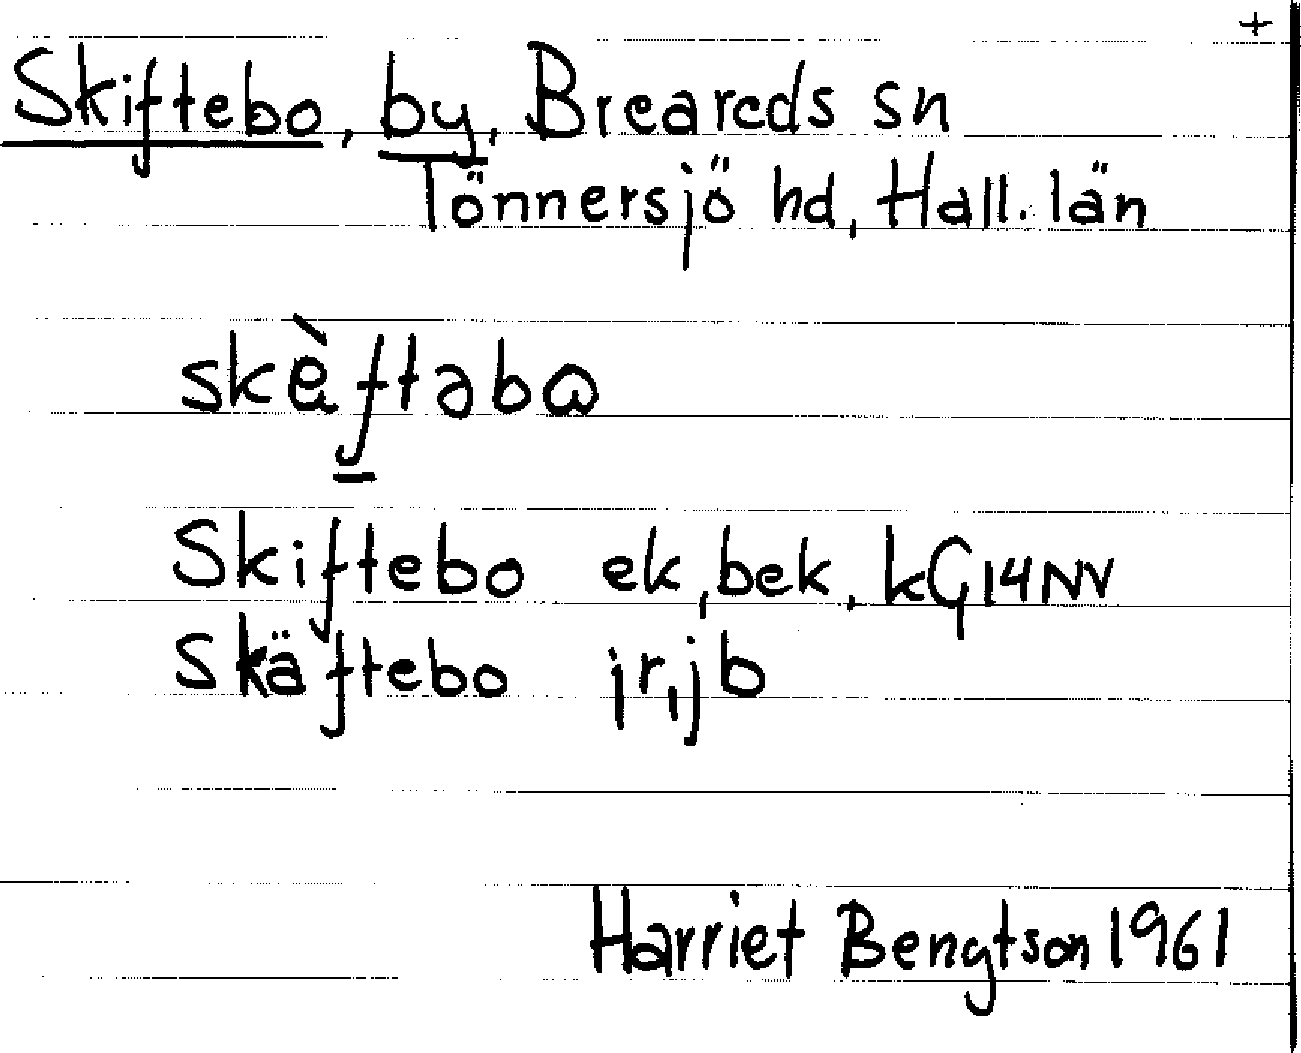 +
Skiftebo, by, Breareds sn
Tönnersjö hd, Hall. län
skèftəbɷ
Skiftebo ek, bek, kG14NV
Skäftebo jr, jb
Harriet Bengtson 1961